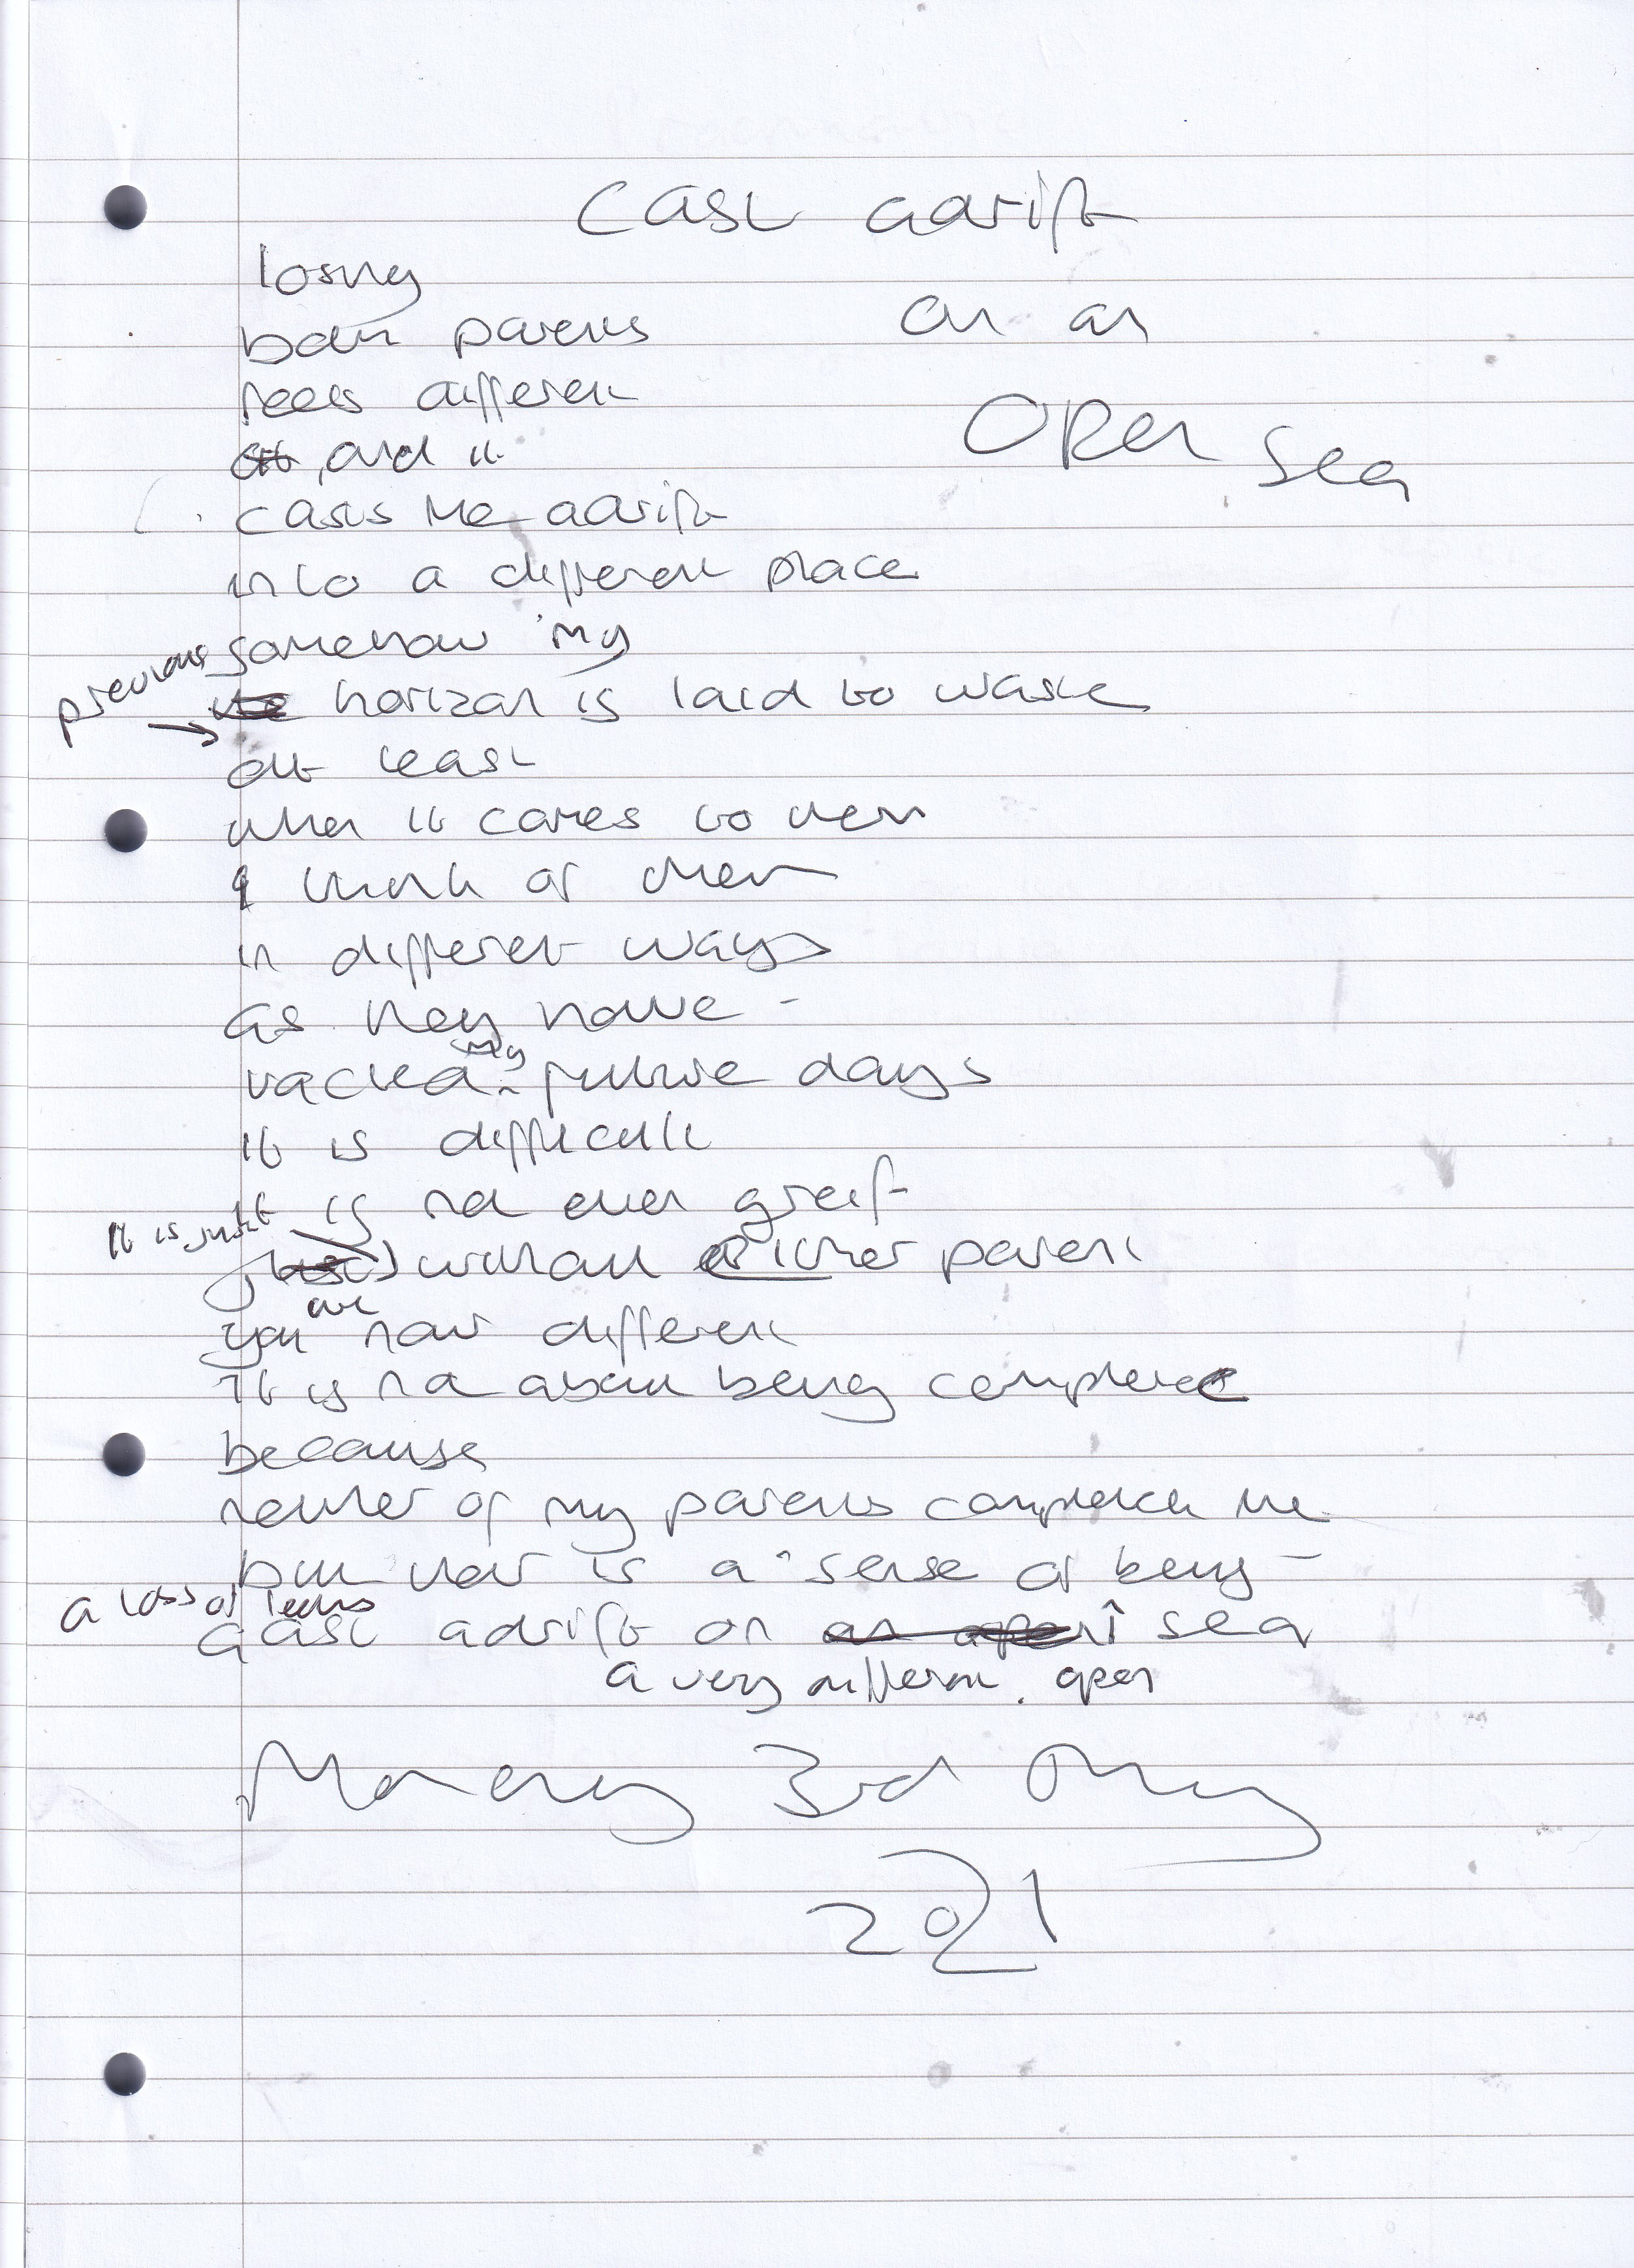 Cast adrift
on an
open sea
losing
both parents
feels different
, and it
casts me adrift
into a different place
somehow my
previous horizon is laid to waste
at least
when it comes to them
I think of them
in different ways
as they have -
my future days
it is difficult
it is not even greif
It is just without either parent
you are now different
It is not about being complete
because
neither of my parents completed me
but there is a sense of being -
a loss of
cast adrift on an open sea
a very different open
Monday 3rd May
2021